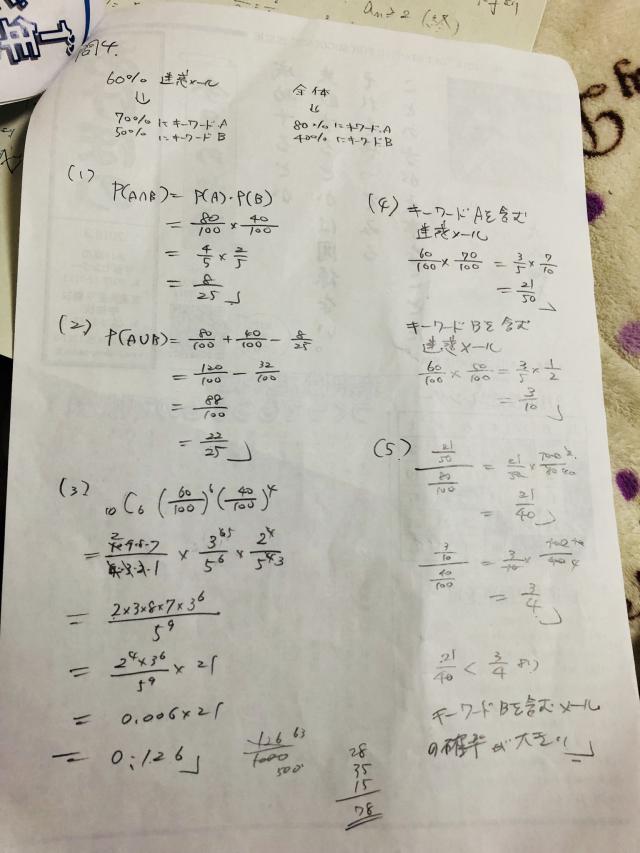 問4.
60% 迷惑メール
↓
70% にキーワード A
50% にキーワード B
全体
↓
80% にキーワード A
40% にキーワード B
(1)
P(A∩B) = P(A)・P(B)
= 80/100 × 40/100
= 4/5 × 2/5
= 8/25
(2)
P(A∪B) = 80/100 + 40/100 - 8/25
= 120/100 - 32/100
= 88/100
= 22/25
(3)
10C6 (60/100)^6 (40/100)^4
= 10・9・8・7/4・3・2・1 × 3^6/5^6 × 2^4/5^4
= 2×3×8×7×3^6/5^9
= 2^4×3^6/5^9 × 21
= 0.006×21
= 0.126
126 63
1000
500
28
35
15
78
(4) キーワードAを含む
迷惑メール
60/100 × 70/100 = 3/5 × 7/10
= 21/50
キーワードBを含む
迷惑メール
60/100 × 50/100 = 3/5 × 1/2
= 3/10
(5)
21/50 / 80/100 = 21/50 × 100/80
= 21/40
3/10 / 40/100 = 3/10 × 100/40
= 3/4
21/40 < 3/4 より
キーワードBを含むメール
の確率が大きい